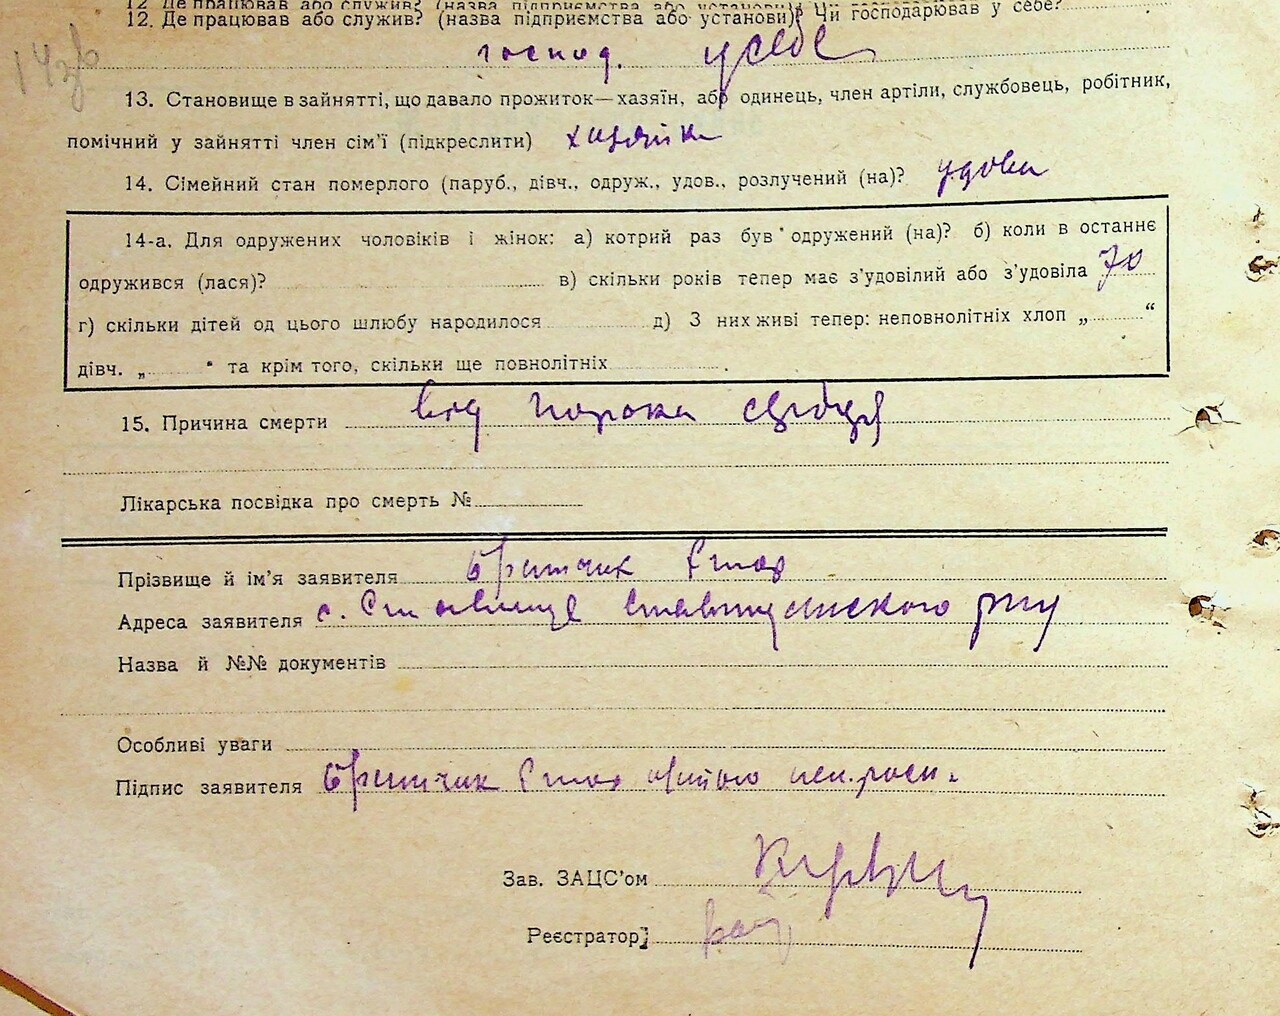 12. Де працював або служив? (назва підприємства або установи)? Чи господарював у себе?
господ. у себе
13. Становище в зайнятті, що давало прожиток—хазяїн, або одинець, член артіли, службовець, робітник,
помічний у зайнятті член сім'ї (підкреслити) хазяйка
14. Сімейний стан померлого (паруб., дівч., одруж., удов., розлучений (на)? удова
14-а. Для одружених чоловіків і жінок: а) котрий раз був одружений (на)? б) коли в останнє
одружився (лася)? в) скільки років тепер має з'удовілий або з'удовіла 70
г) скільки дітей од цього шлюбу народилося д) З них живі тепер: неповнолітніх хлоп „ “
дівч. „ “ та крім того, скільки ще повнолітніх .
15. Причина смерти від порока сердця
Лікарська посвідка про смерть №
Прізвище й ім'я заявителя
Адреса заявителя с. Ставище Ставищанского р-ну
Назва й №№ документів
Особливі уваги
Підпис заявителя
Зав. ЗАЦС'ом
Реєстратор